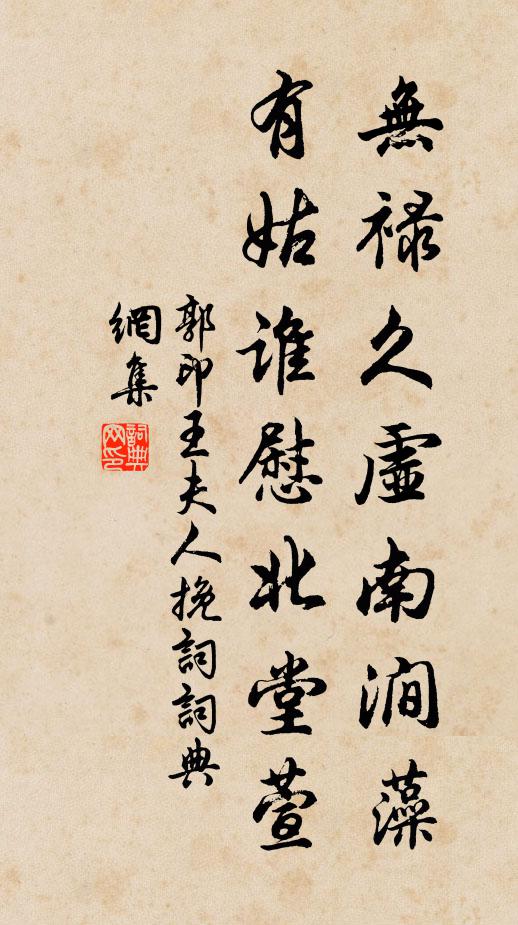 無祿久虛南澗藻
有姑誰慰北堂萱
郭印王夫人挽詞詞典
網集
詞典
网印